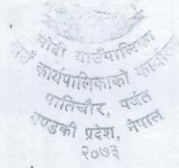 मोदी गाउँपालिका
गाउँ कार्यपालिकाको कार्यालय
पातिचौर, पर्वत
गण्डकी प्रदेश, नेपाल
२०७३